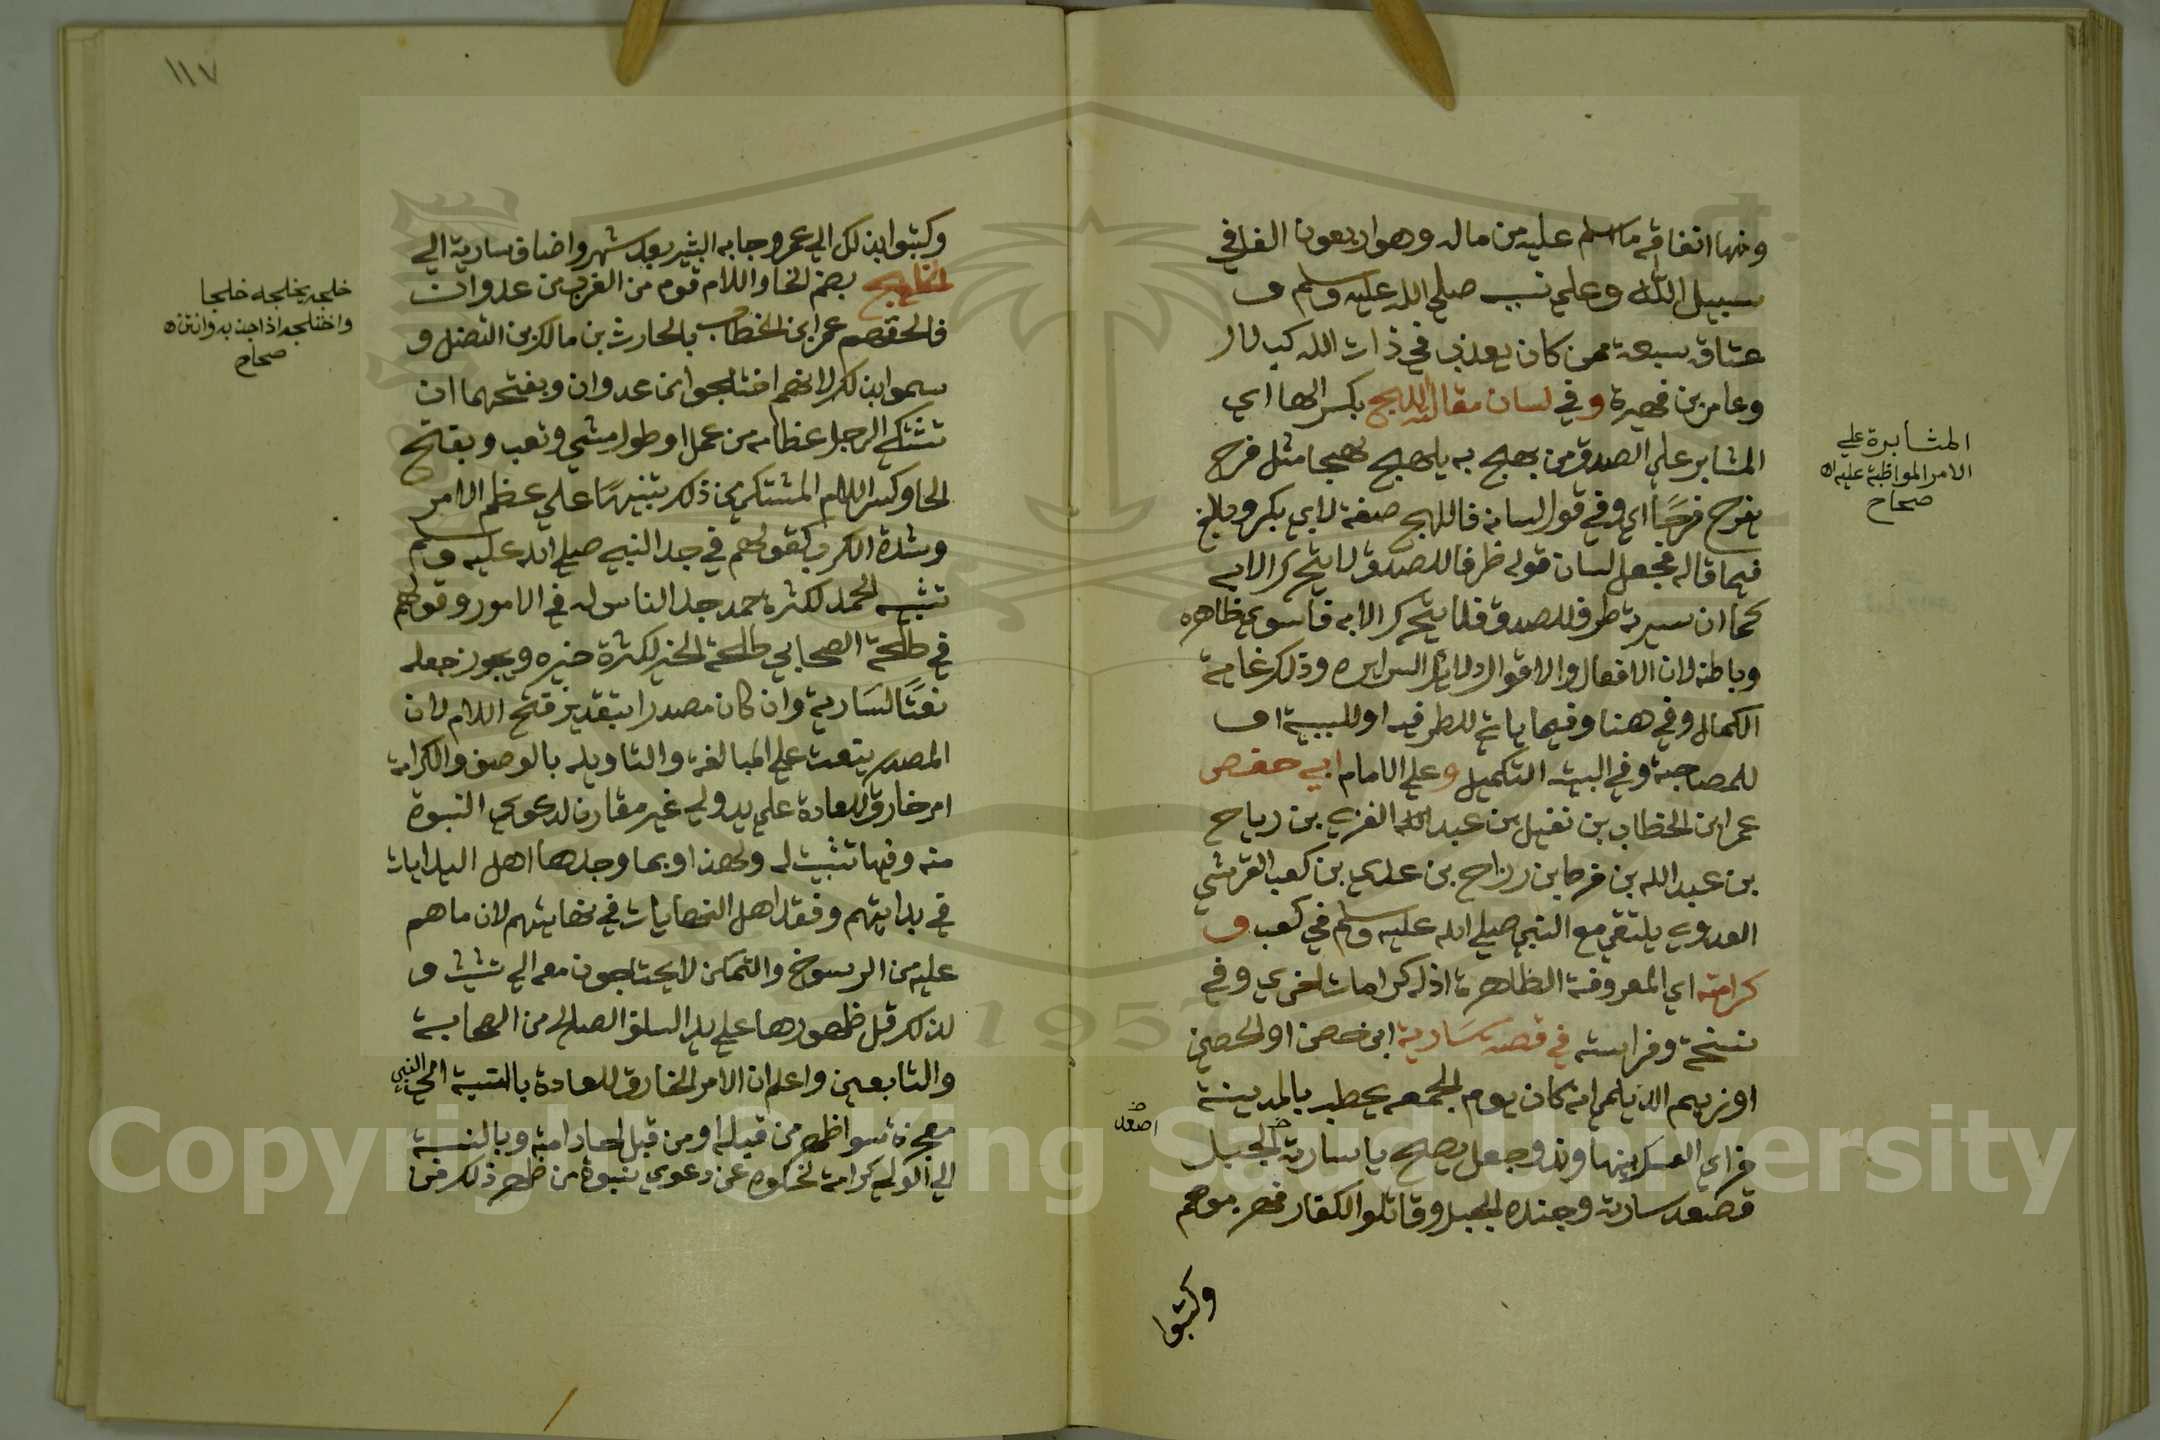 ومنها انفاقه ما سلم عليه من ماله وهو اربعون الفا في
سبيل الله وعلي نبيه صلي الله عليه وسلم و
عتاقه سبعة ممن كان يعذب في ذات الله كبلال
وعامر بن فهيرة وفي لسان مقاله اللهج بكسر الها اي
المثابر علي الصدق من لهج به يلهج لهجا مثل فرح
يفرح فرحا اي وفي قول لسانه فاللهج صفة لابي بكر وبالغ
فيما قاله فجعل لسان قوله ظرفا للصدق لا يتحرك الا به
كما ان سيرته ظرف للصدق فلا يتحرك الا به فاستوي ظاهره
وباطنه لان الافعال والاقوال دلايل السراير وذلك غاية
الكمال وفي هنا وفيما ياتي للظرفية او للسببية او
للمصاحبة وفي البيت التكميل وعلي الامام ابي حفص
عمر ابن الخطاب بن نفيل بن عبد العزي بن رياح
بن عبد الله بن قرط بن رزاح بن عدي بن كعب القرشي
العدوي يلتقي مع النبي صلي الله عليه وسلم في كعب و
كرامته اي المعروفة الظاهرة اذ له كرامات اخري وفي
نسخة وفراسته في قصة سارية ابن حصن او الحصين
او زنيم الديلمي انه كان يوم الجمعه يخطب بالمدينة
فراي العسكر بنهاوند وجعل يصيح يا سارية الجبل
فصعد سارية وجنده الجبل وقاتلوا الكفار فهزموهم
وكتبوا
المثابرة علي
الامر المواظبة عليه اه
صحاح
اصعد
١١٧
وكتبوا بذلك الي عمر وجا به البشير بعد شهر واضاف سارية الي
الخلج بضم الخا واللام قوم من العرب من عدوان
فالحقهم عمر ابن الخطاب بالحارث بن مالك بن النضر و
سموا بذلك لانهم اختلجوا من عدوان وبفتحهما ان
تشتكي الرجل عظامه من عمل او طول مشي وتعب وبفتح
الخا وكسر اللام المشتكي من ذلك تنبيها علي عظم الامر
وشدة الكرب كقولهم في جد النبي صلي الله عليه وسلم
شيبه الحمد لكثرة حمد جد الناس له في الامور وقولهم
في طلحة الصحابي طلحة الخير لكثرة خيره ويجوز جعله
نعتا لسارية وان كان مصدرا بتقدير فتح اللام لان
المصدر ينعت علي المبالغة والتاويل بالوصف والكرامة
امر خارق للعادة علي يد ولي غير مقارن لدعوي النبوة
منه وفيها تثبيت له ولهذا ربما وجدها اهل البدايات
في بدايتهم وفقد اهل النهايات في نهايتهم لان ما هم
عليه من الرسوخ والتمكن لا يحتاجون معه الي تثبيت و
لذلك قل ظهورها علي يد السلف الصالح من الصحابة
والتابعين واعلم ان الامر الخارق للعادة بالنسبة الي النبي
معجزة سوا ظهر من قبله او من قبل احاد امته وبالنسبة
الي الولي كرامة لخلوه عن دعوي نبوة من ظهر ذلك من
خلجه يخلجه خلجا
واختلجه اذا جذبه وانتزعه
صحاح
1957
Copyright © King Saud University